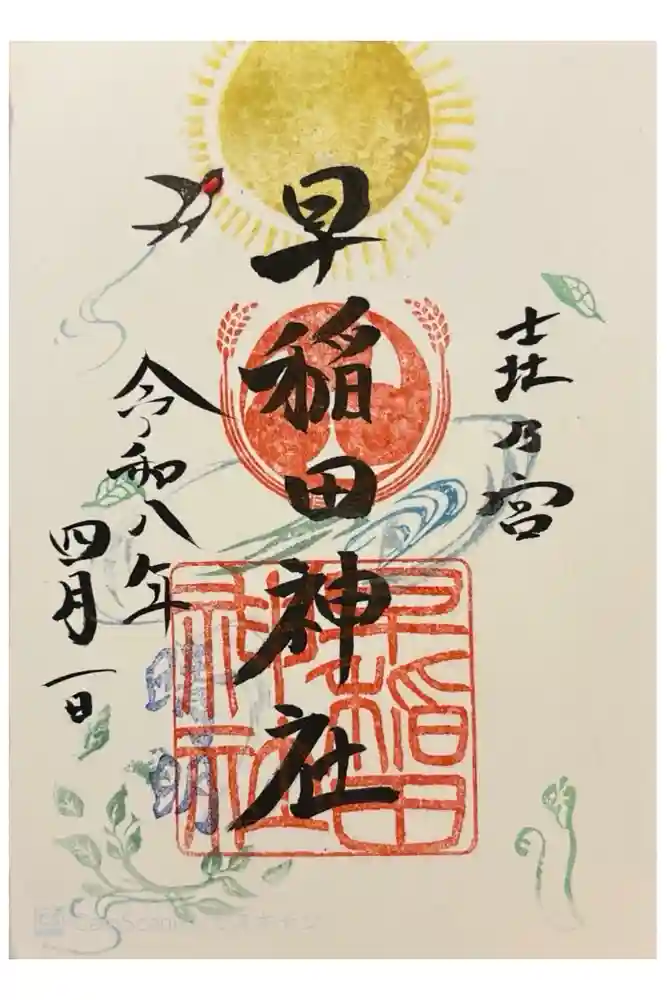 乃宮
早稲田神社
令和八年
四月一日
明
早稲田
神社
CamScanner